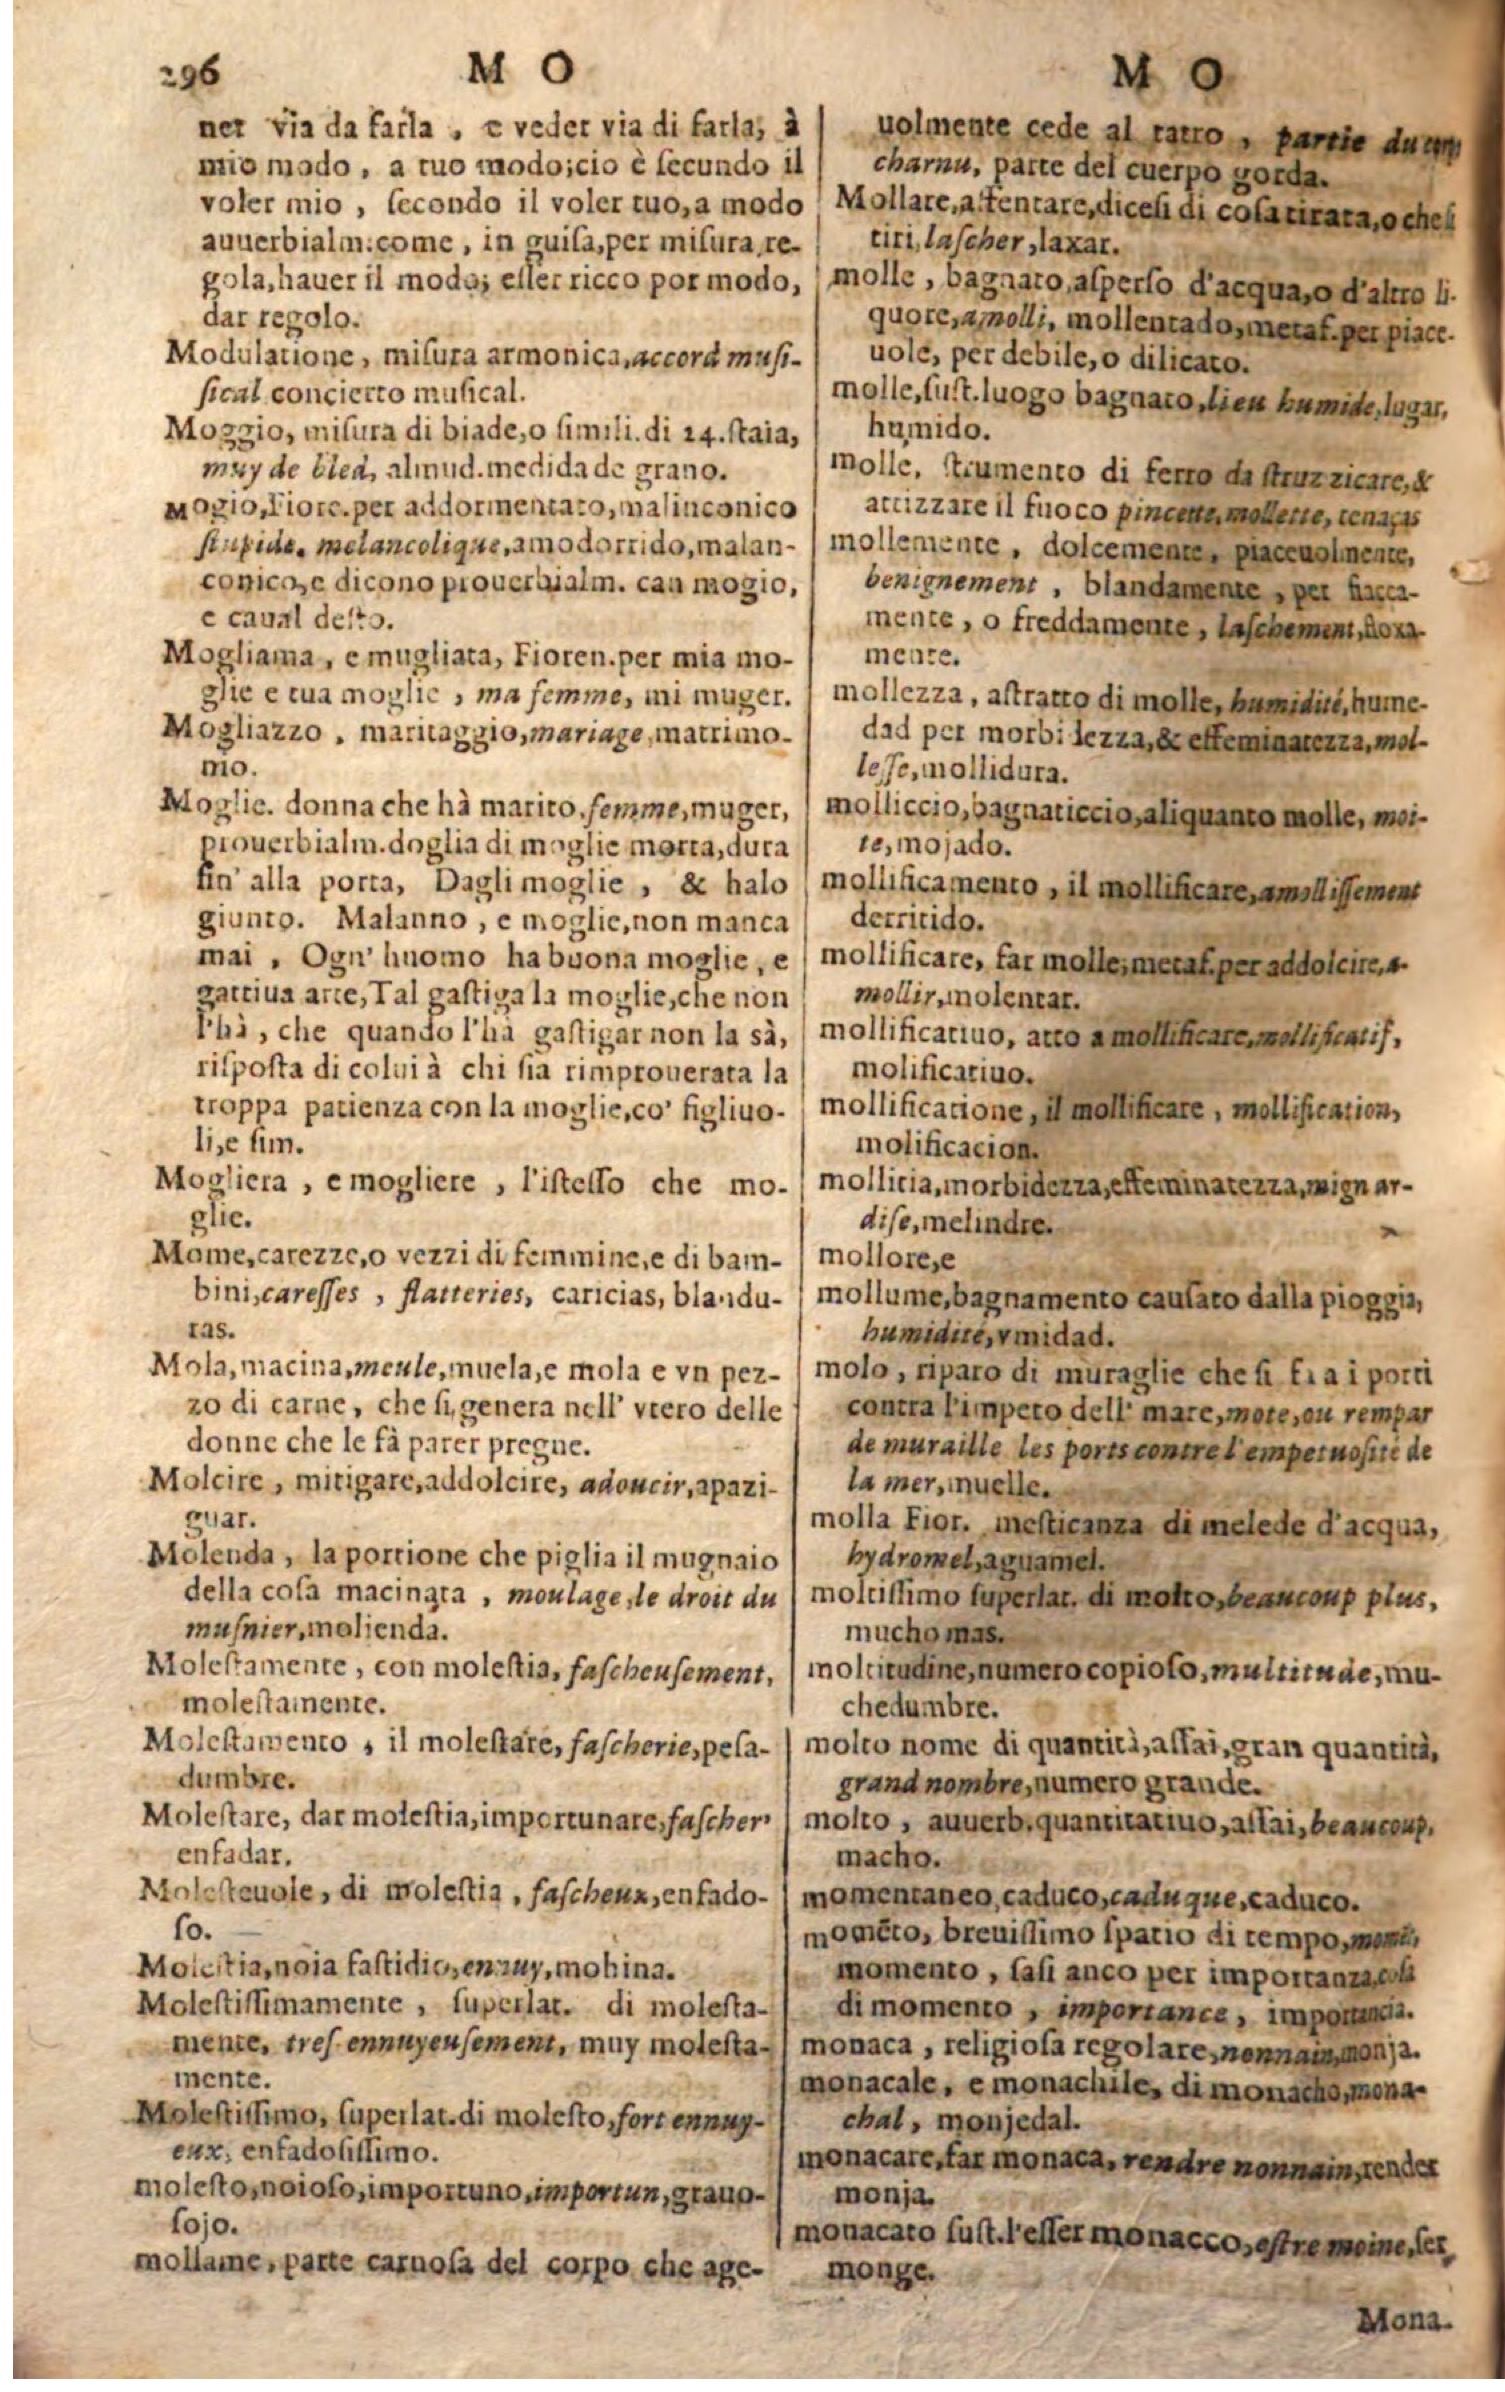 296 M O
M O
ner via da farla, e veder via di farla, à
mio modo, a tuo modo; cio è secundo il
voler mio, secondo il voler tuo, a modo
auuerbialm. come, in guisa, per misura, re-
gola, hauer il modo; esser ricco por modo,
dar regolo.
Modulatione, misura armonica, accord musi-
sical concierto musical.
Moggio, misura di biade, o simili. di 24. staia,
muy de bled, almud. medida de grano.
Mogio, Fiore. per addormentato, malinconico
stupide. melancolique, amodorrido, malan-
conico, e dicono prouerbialm. can mogio,
e caual desto.
Mogliama, e mugliata, Fioren. per mia mo-
glie e tua moglie, ma femme, mi muger.
Mogliazzo, maritaggio, mariage, matrimo-
mo.
Moglie. donna che hà marito, femme, muger,
prouerbialm. doglia di moglie morta, dura
fin' alla porta, Dagli moglie, & halo
giunto. Malanno, e moglie, non manca
mai, Ogn' huomo ha buona moglie, e
gattiua arte, Tal gastiga la moglie, che non
l'hà, che quando l'hà gastigar non la sà,
risposta di colui à chi sia rimprouerata la
troppa patienza con la moglie, co' figliuo-
li, e sim.
Mogliera, e mogliere, l'istesso che mo-
glie.
Mome, carezze, o vezzi di femmine, e di bam-
bini, caresses, flatteries, caricias, blandu-
ras.
Mola, macina, meule, muela, e mola e vn pez-
zo di carne, che si genera nell' vtero delle
donne che le fà parer pregne.
Molcire, mitigare, addolcire, adoucir, apazi-
guar.
Molenda, la portione che piglia il mugnaio
della cosa macinata, moulage, le droit du
musnier, molienda.
Molestamente, con molestia, fascheusement,
molestamente.
Molestamento, il molestare, fascherie, pesa-
dumbre.
Molestare, dar molestia, importunare, fascher,
enfadar.
Molesteuole, di molestia, fascheux, enfado-
so.
Molestia, noia fastidio, ennuy, mohina.
Molestissimamente, superlat. di molesta-
mente, tres ennuyeusement, muy molesta-
mente.
Molestissimo, superlat. di molesto, fort ennuy-
eux, enfadosissimo.
molesto, noioso, importuno, importun, grauo-
sojo.
mollame, parte carnosa del corpo che age-
uolmente cede al tatto, partie du corps
charnu, parte del cuerpo gorda.
Mollare, allentare, dicesi di cosa tirata, o che si
tiri, lascher, laxar.
molle, bagnato, asperso d'acqua, o d'altro li-
quore, amolli, mollentado, metaf. per piace-
uole, per debile, o dilicato.
molle, sust. luogo bagnato, lieu humide, lugar,
humido.
molle, strumento di ferro da struzzicare, &
attizzare il fuoco pincette, mollette, tenaças
mollemente, dolcemente, piaceuolmente,
benignement, blandamente, per fiacca-
mente, o freddamente, laschement, floxa-
mente.
mollezza, astratto di molle, humidité, hume-
dad per morbidezza, & effeminatezza, mol-
lesse, mollidura.
molliccio, bagnaticcio, aliquanto molle, moi-
te, mojado.
mollificamento, il mollificare, amollissement
derritido.
mollificare, far molle; metaf. per addolcire, a-
mollir, molentar.
mollificatiuo, atto a mollificare, mollificatif,
molificatiuo.
mollificatione, il mollificare, mollification,
molificacion.
mollitia, morbidezza, effeminatezza, mignar-
dise, melindre.
mollore, e
mollume, bagnamento causato dalla pioggia,
humidité, vmidad.
molo, riparo di muraglie che si fa a i porti
contra l'impeto dell' mare, mote, ou rempar
de muraille les ports contre l'empetuosité de
la mer, muelle.
molla Fior. mesticanza di melede d'acqua,
hydromel, aguamel.
moltissimo superlat. di molto, beaucoup plus,
mucho mas.
moltitudine, numero copioso, multitude, mu-
chedumbre.
molto nome di quantità, assai, gran quantità,
grand nombre, numero grande.
molto, auuerb. quantitatiuo, assai, beaucoup,
macho.
momentaneo, caduco, caduque, caduco.
momēto, breuissimo spatio di tempo,
momento, sasi anco per importanza, cosa
di momento, importance, importancia.
monaca, religiosa regolare, nonnain, monja.
monacale, e monachile, di monacho, mona-
chal, monjedal.
monacare, far monaca, rendre nonnain, render
monja.
monacato sust. l'esser monacco, estre moine, ser
monge.
Mona-